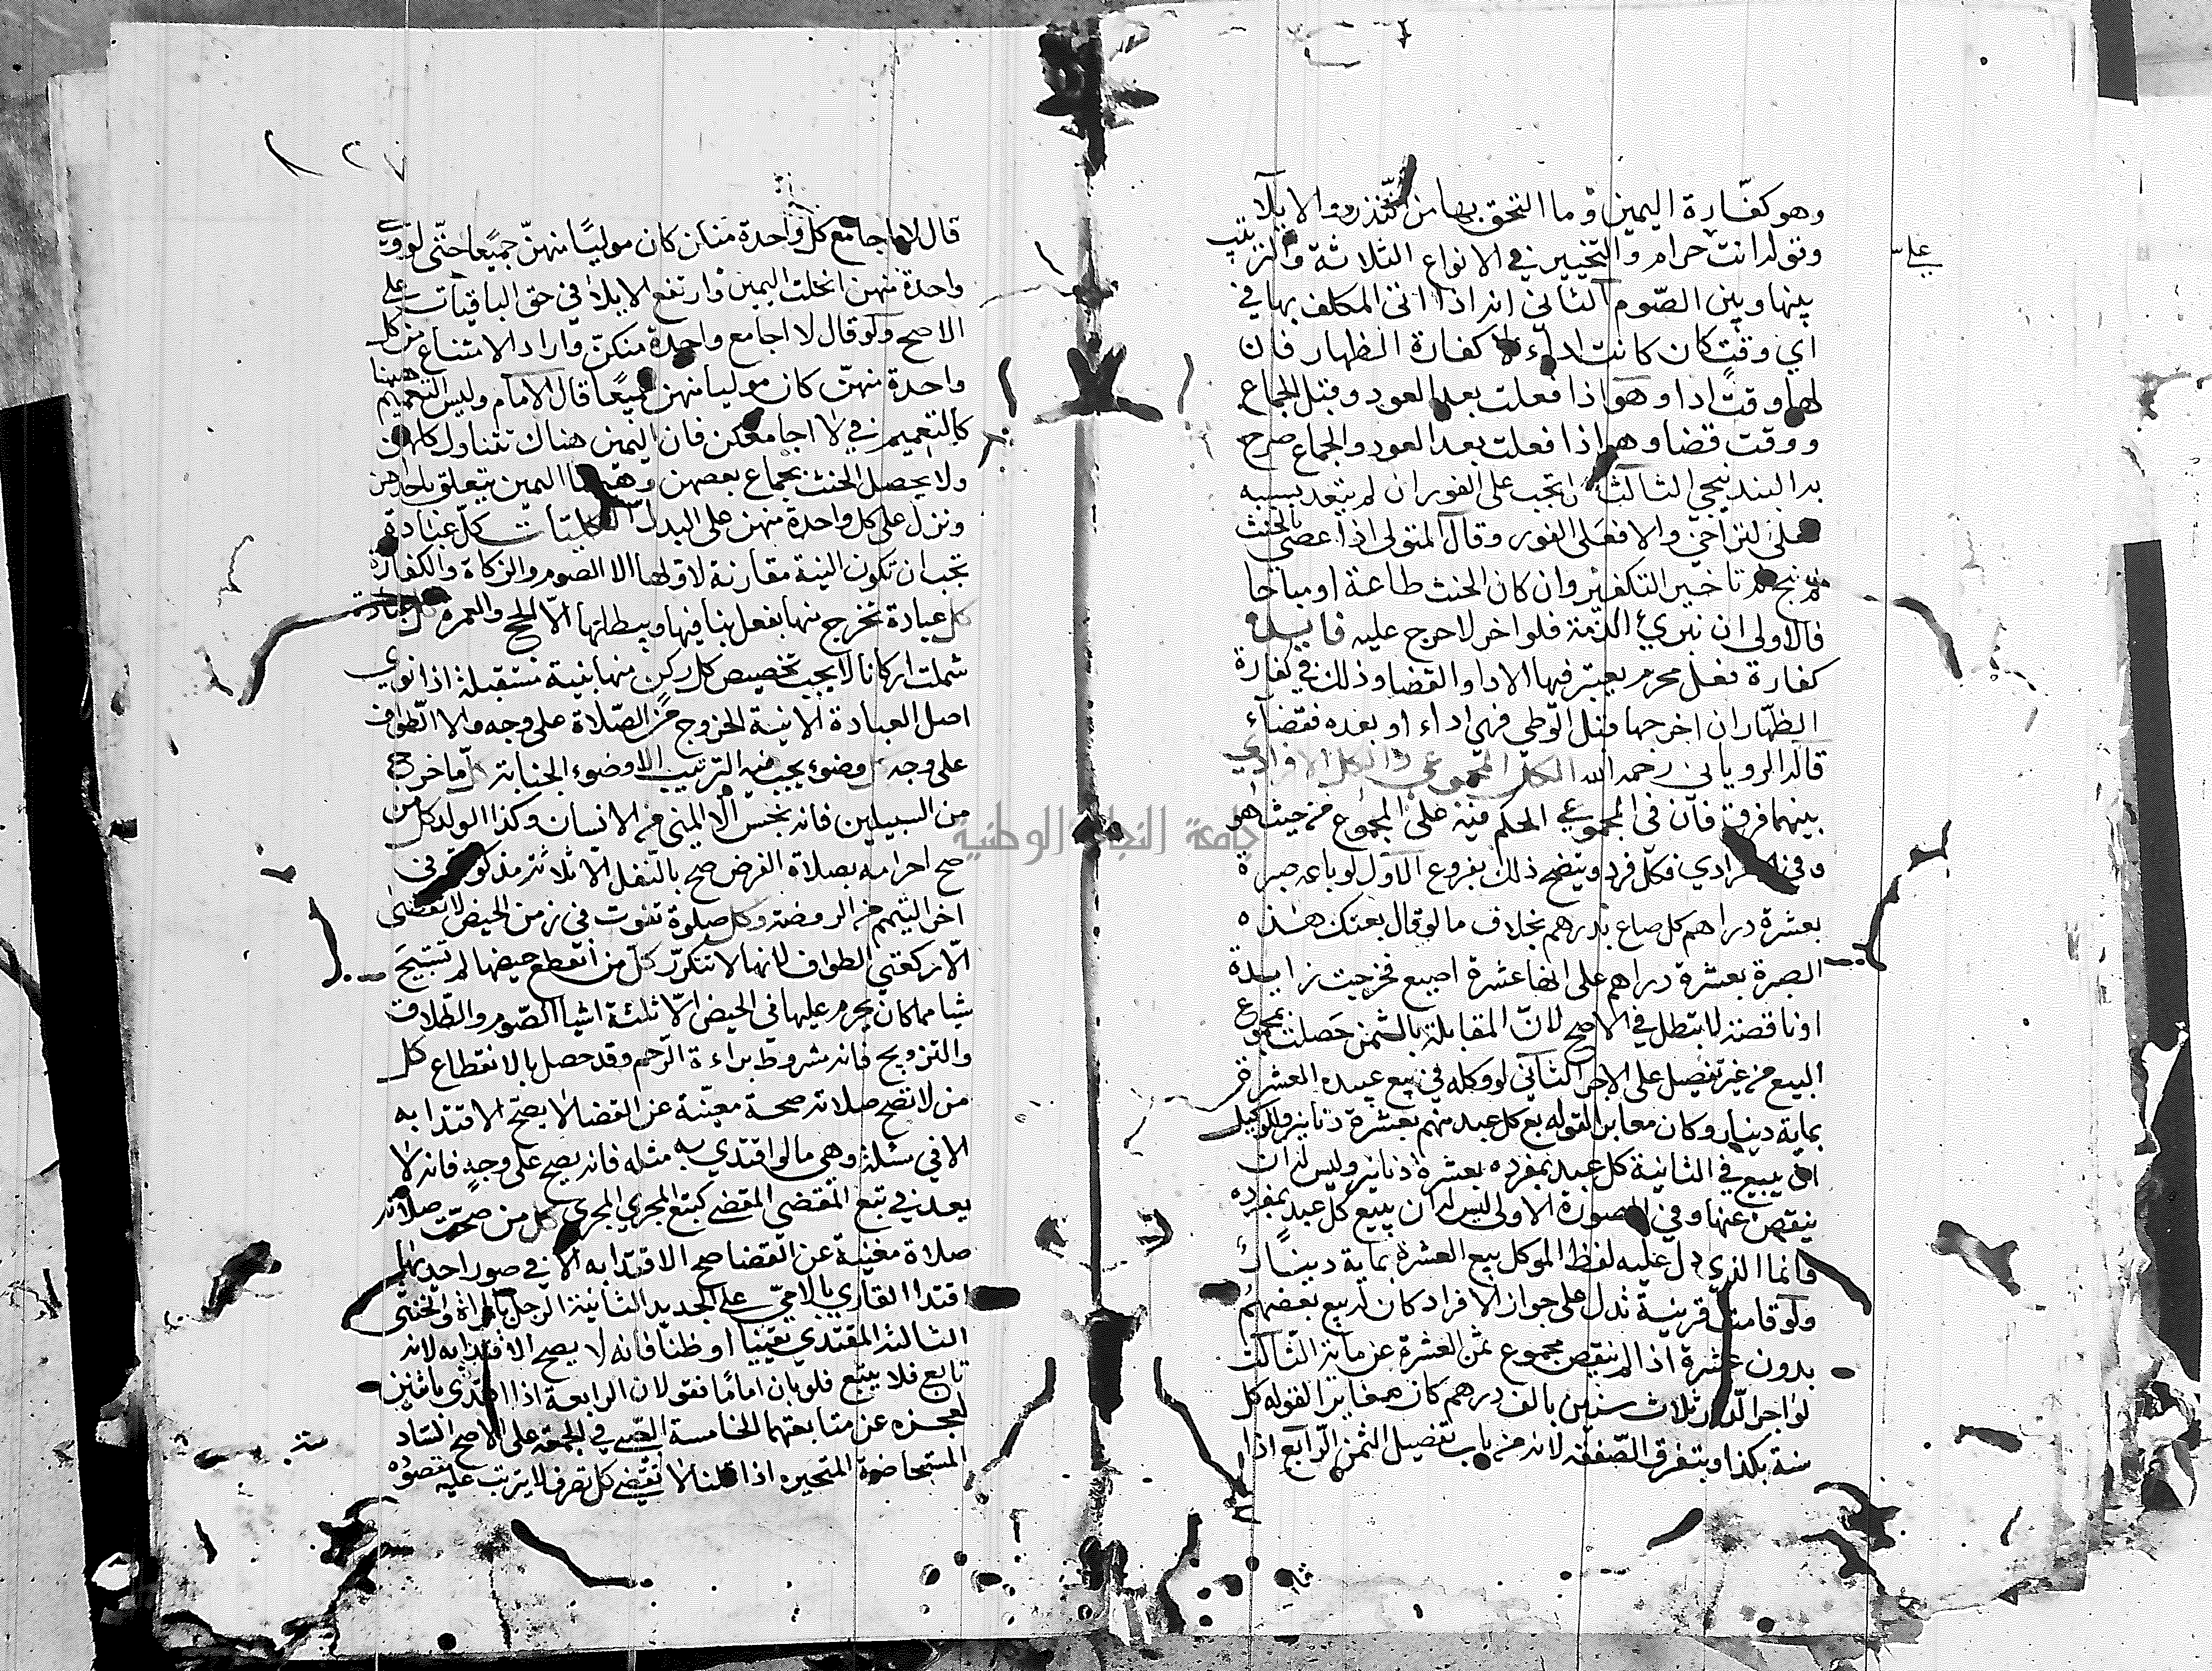 وهو كفارة اليمين وما التحق بها من النذر والايلا
وقوله انت حرام والتخيير في الانواع الثلاثة والترتيب
على
بينها وبين الصوم الثاني انه اذا اتى المكلف بها في
اي وقت كان كانت اداء الا كفارة الظهار فان
لها وقت ادا وهو اذا فعلت بعد العود وقبل الجماع
ووقت قضا وهو اذا فعلت بعد العود والجماع صرح
بذا البندنيجي الثالث تجب على الفور ان لم يتعد بسببه
فعلى التراخي والا فعلى الفور وقال المتولي اذا عصى بالحنث
لم يبح له تاخير التكفير وان كان الحنث طاعة او مباحا
فالاولى ان يبرئ الذمة فلو اخر لا حرج عليه فايدة
كفارة فعل محرم يعتبر فيها الادا والقضا وذلك في كفارة
الظهار ان اخرجها قبل الوطي فهي اداء او بعده فقضاء
قاله الروياني رحمه الله الكل المجموعي والكل الافرادي
بينهما فرق فان في المجموعي الحكم فيه على المجموع من حيث هو
وفي الافرادي فكل فرد ويتضح ذلك بفروع الاول لو باعه صبرة
بعشرة دراهم كل صاع بدرهم بخلاف ما لو قال بعتك هذه
الصبرة بعشرة دراهم على انها عشرة اصيع فخرجت زايدة
او ناقصة لا يبطل في الاصح لان المقابلة بالثمن حصلت بمجموع
البيع من غير تفصيل على الاجزا الثاني لو وكله في بيع عبيده العشرة
بماية دينار وكان مغايرا لقوله بع كل عبد منهم بعشرة دنانير وللوكيل
ان يبيع في الثانية كل عبد بمفرده بعشرة دنانير وليس له ان
ينقص عنها وفي الصورة الاولى ليس له ان يبيع كل عبد بمفرده
فانما الذي دل عليه لفظ الموكل بيع العشرة بماية دينار
ولو قامت قرينة تدل على جواز الافراد كان له بيع بعضهم
بدون عشرة اذا لم ينقص مجموع ثمن العشرة عن ماية الثالث
لو اجر الدار ثلاث سنين بالف درهم كان مغايرا لقوله كل
سنة بكذا وبتفرق الصفقة لانه من باب تفصيل الثمن الرابع اذا
قال لا اجامع كل واحدة منكن كان موليا منهن جميعا حتى لو وطي
واحدة منهن انحلت اليمين وارتفع الايلا في حق الباقيات على
الاصح ولو قال لا اجامع واحدة منكن واراد الامتناع من كل
واحدة منهن كان موليا منهن جميعا قال الامام وليس التعميم ههنا
كالتعميم في لا اجامعكن فان اليمين هناك تتناول كلهن
ولا يحصل الحنث بجماع بعضهن وههنا اليمين يتعلق باحداهن
ونزل على كل واحدة منهن على البدل الكليات كل عبادة
تجب ان تكون النية مقارنة لاولها الا الصوم والزكاة والكفارة
كل عبادة تخرج منها بفعل ينافيها ويبطلها الا الحج والعمرة كل عبادة
شملت اركانا لا يجب تخصيص كل ركن منها بنية مستقبلة اذا نوي
اصل العبادة الا نية الخروج من الصلاة على وجه والا الطواف
على وجه كل وضوء يجب فيه الترتيب الا وضوء الجنابة كل ما خرج
من السبيلين فانه نجس الا المني من الانسان وكذا الولد كل من
صح احرامه بصلاة الفرض صح بالنفل الا ثلاثة مذكورة في
اخر التيمم من الروضة وكل صلوة تفوت في زمن الحيض لا تقضى
الا ركعتي الطواف لانها لا تتكرر كل من انقطع حيضها لم تستبح
شيا مما كان يحرم عليها في الحيض الا ثلثة اشيا الصوم والطلاق
والتزويج فانه شروط براءة الرحم وقد حصل بالانقطاع كل
من لا تصح صلاته صحة مغنية عن القضا لا يصح الاقتدا به
الا في مسئلة وهي ما لو اقتدي به مثله فانه يصح على وجه فانه لا
يعد في تبع المقتضي المقضي كتبع المجزي المجزي كل من صحت صلاته
صلاة مغنية عن القضا صح الاقتدا به الا في صور احديها
اقتدا القاري بالامي على الجديد الثانية الرجل بالمراة والخنثى
الثالثة المقتدي يقينا او ظنا فانه لا يصح الاقتدا به لانه
تابع فلا يتبع فلو بان اماما فقولان الرابعة اذا اقتدي باثنين
لعجزه عن متابعتهما الخامسة الصبي في الجمعة على الاصح الساد
ستة
المستحاضة المتحيرة اذا قلنا لا تقضي كل تصرف لا يترتب عليه مقصوده
جامعة النجاح الوطنية